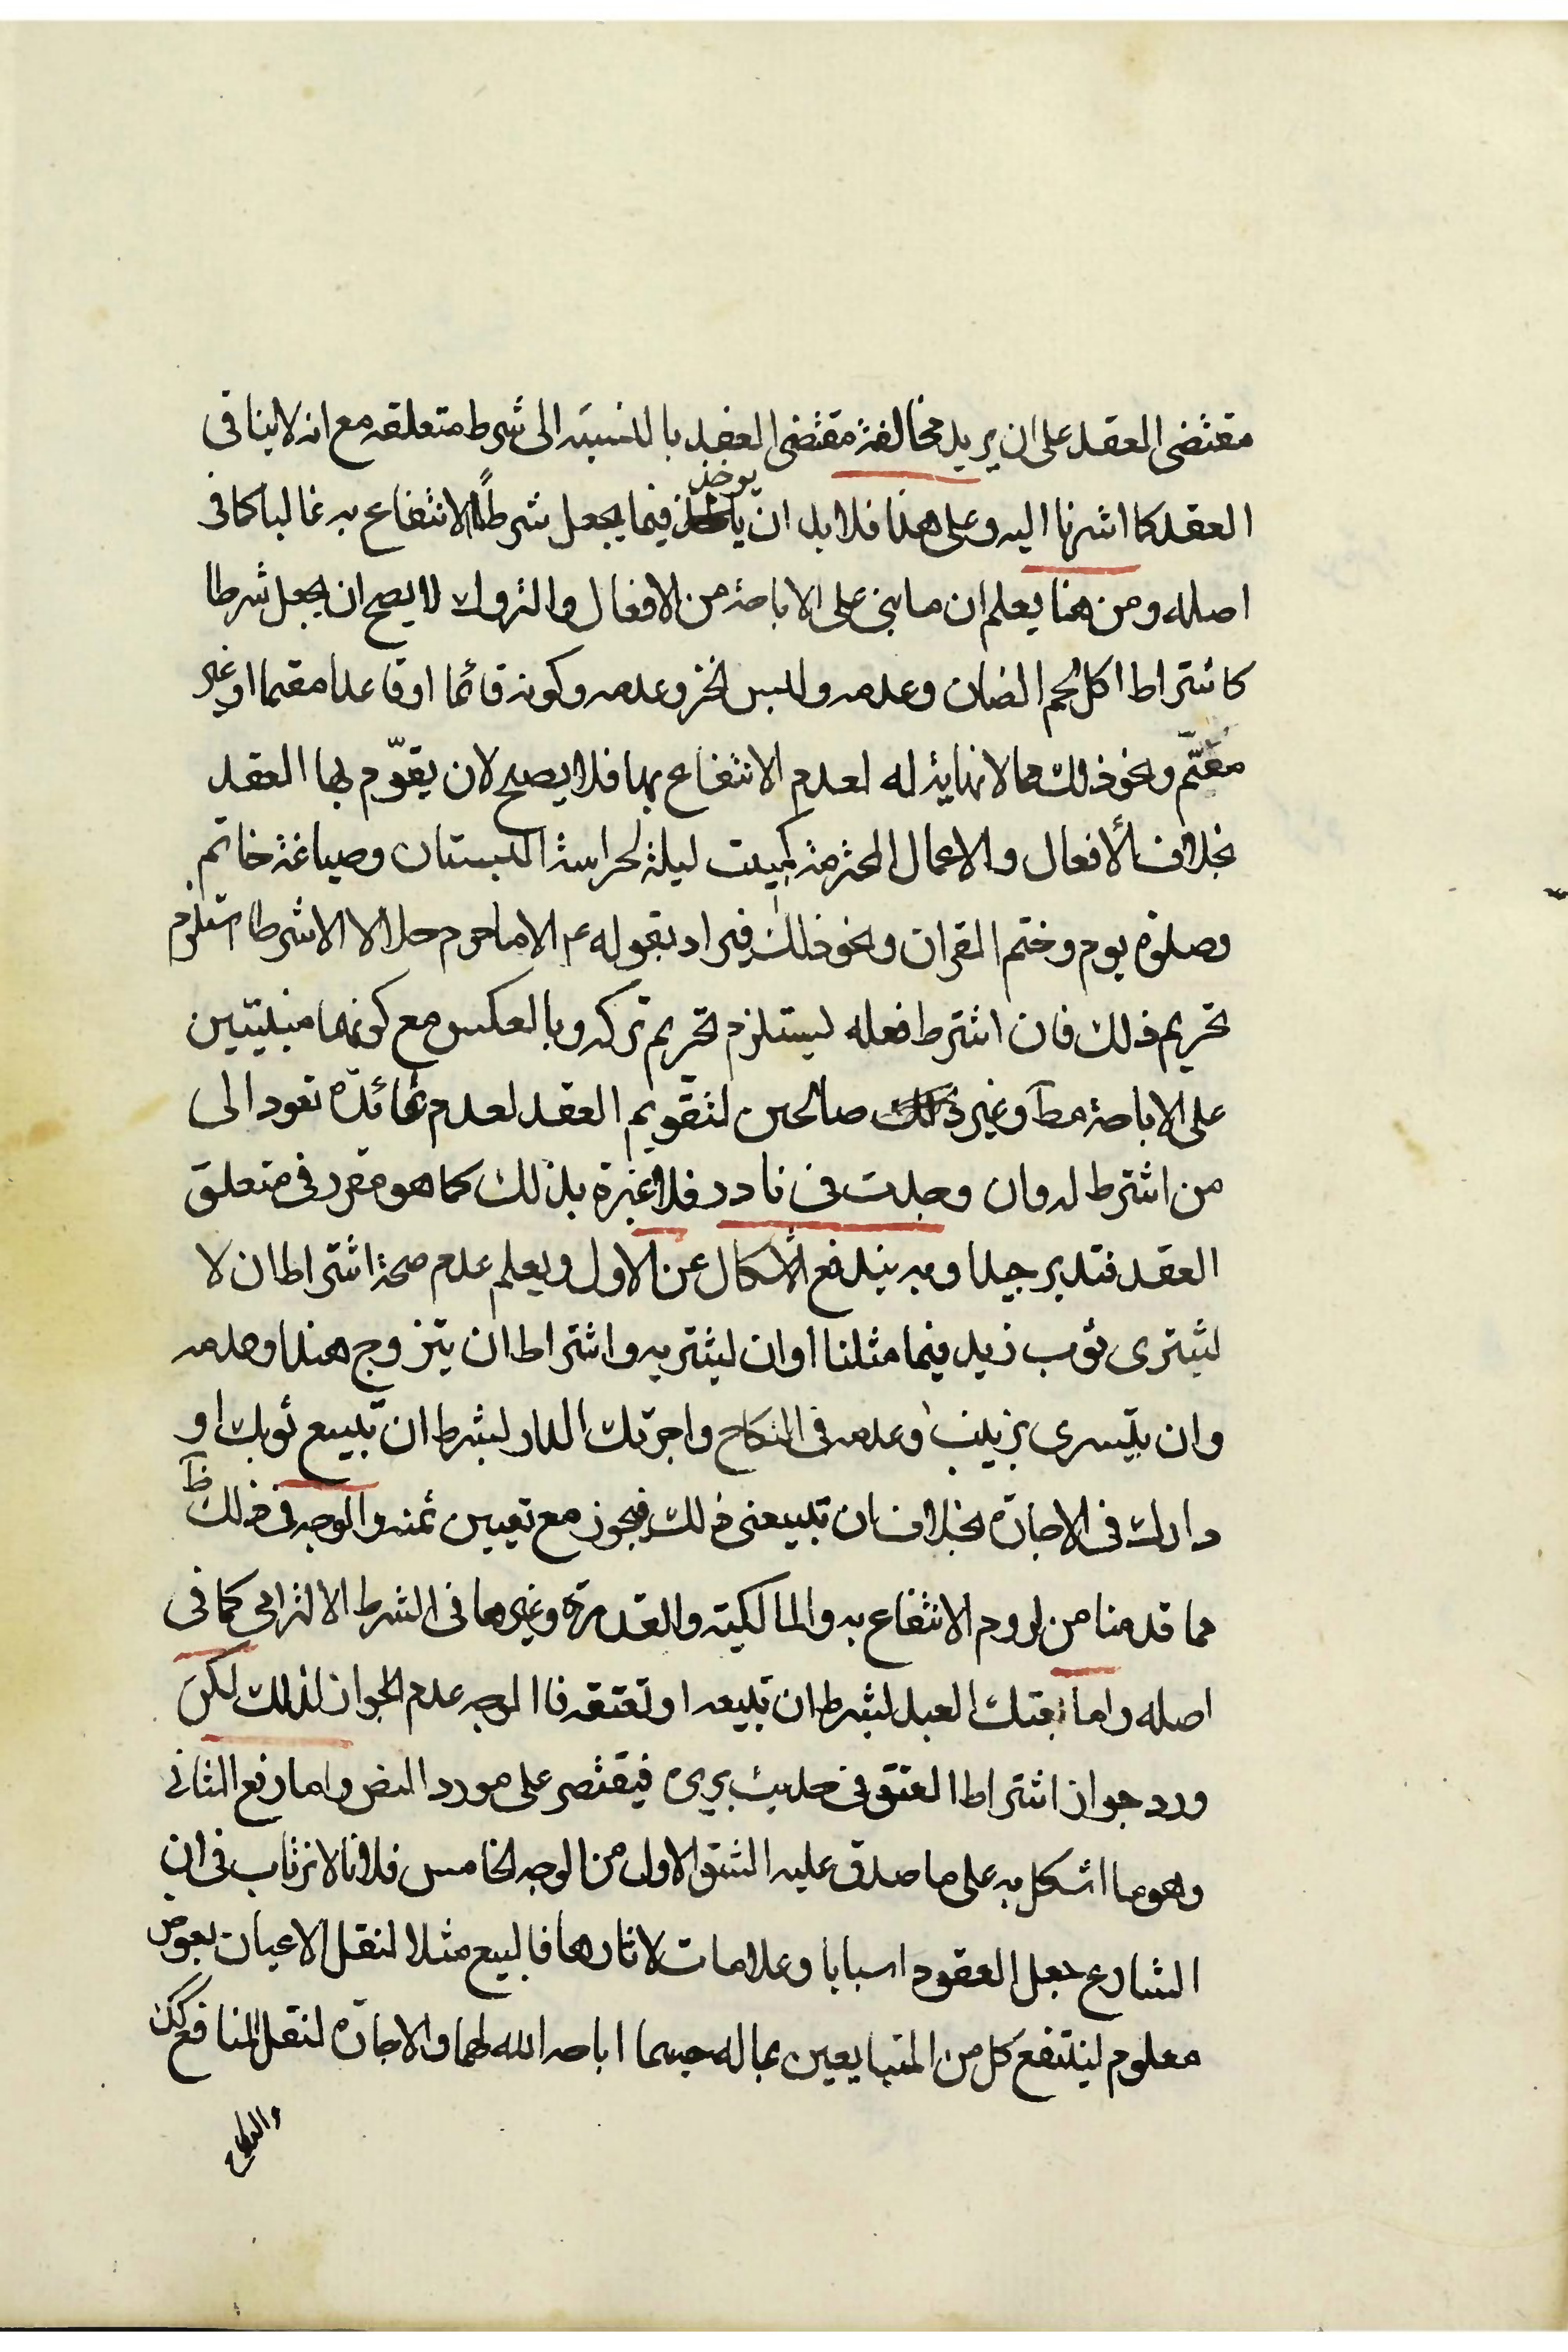 مقتضى العقد على ان يريد مخالفة مقتضى العقد بالنسبة الى شرط متعلقه مع انه لا ينافى
العقد كما اشرنا اليه وعلى هذا فلا بد ان يوخذ فيما يجعل شرطًا الانتفاع به غالبا كما فى
اصله ومن هنا يعلم ان ما بنى على الاباحة من الافعال والتروك لا يصح ان يجعل شرطا
كاشتراط اكل لحم الضان وعدمه ولبس الخز وعدمه وكونه قائما او قاعدا معتما او غير
معتّم ونحو ذلك مما لا نهاية له لعدم الانتفاع بها فلا يصلح لان يقوّم بها العقد
بخلاف الأفعال والاعمال المحترمة كمبيت ليلة لحراسة البستان وصياغة خاتم
وصلوة يوم وختم القران ونحو ذلك فيراد بقوله ع الا ما حرم حلالا الا شرطا استلزم
تحريم ذلك فان اشترط فعله ليستلزم تحريم تركه وبالعكس مع كونهما مبنيتين
على الاباحة مط وغير صالحين لتقويم العقد لعدم فائدة تعود الى
من اشترط له وان وجدت فى نادر فلا عبرة بذلك كما هو مقرر فى متعلق
العقد فتدبر جيدا وبه يندفع الاشكال عن الاول ويعلم عدم صحة اشتراط ان لا
يشترى ثوب زيد فيما مثلنا او ان يشتريه واشتراط ان يتزوج هندا وعدمه
وان يتسرى بزينب وعدمه فى النكاح واجرتك الدار بشرط ان تبيع ثوبك او
دارك فى الاجارة بخلاف ان تبيعنى ذلك فيجوز مع تعيين ثمنه والوجه فى ذلك ظ
مما قدمنا من لزوم الانتفاع به والمالكية والقدرة وغيرها فى الشرط الالتزامى كما فى
اصله واما بعتك العبد بشرط ان تبيعه او تعتقه فالوجه عدم الجواز لذلك لكن
ورد جواز اشتراط العتق فى حديث بريرة فيقتصر على مورد النص واما رفع الثانى
وهو ما اشكل به على ما صدق عليه الشق الاول من الوجه الخامس فلانا لا نرتاب فى ان
الشارع جعل العقود اسبابا وعلامات لاثارها فالبيع مثلا لنقل الاعيان بعوض
معلوم لينتفع كل من المتبايعين بماله حسبما اباحه الله لهما والاجارة لنقل المنافع كك